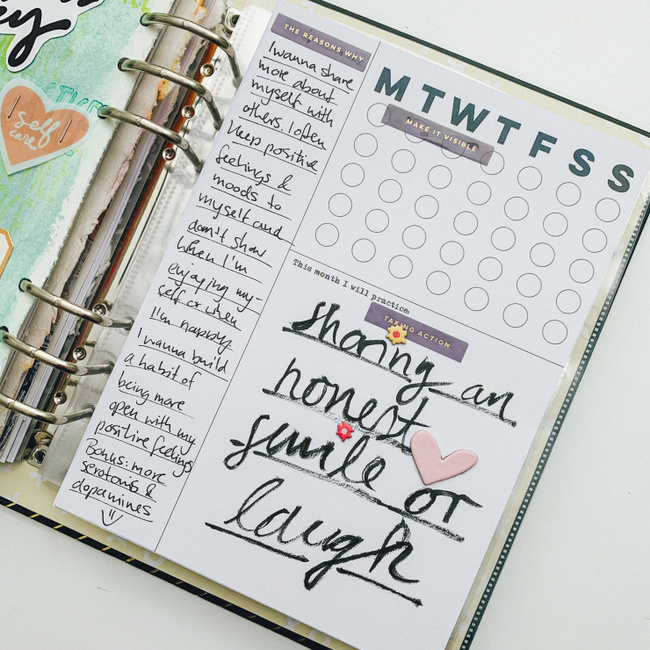 ey
self
care
THE REASONS WHY
I wanna share
more about
myself with
others. I often
keep positive
feelings &
moods to
myself and
don't show
when I'm
enjoying my-
self or when
I'm happy.
I wanna build
a habit of
being more
open with my
positive feelings
Bonus: more
serotonis &
dopamines
M T W T F S S
MAKE IT VISIBLE
This month I will practice:
TAKING ACTION
sharing an
honest
smile or
laugh